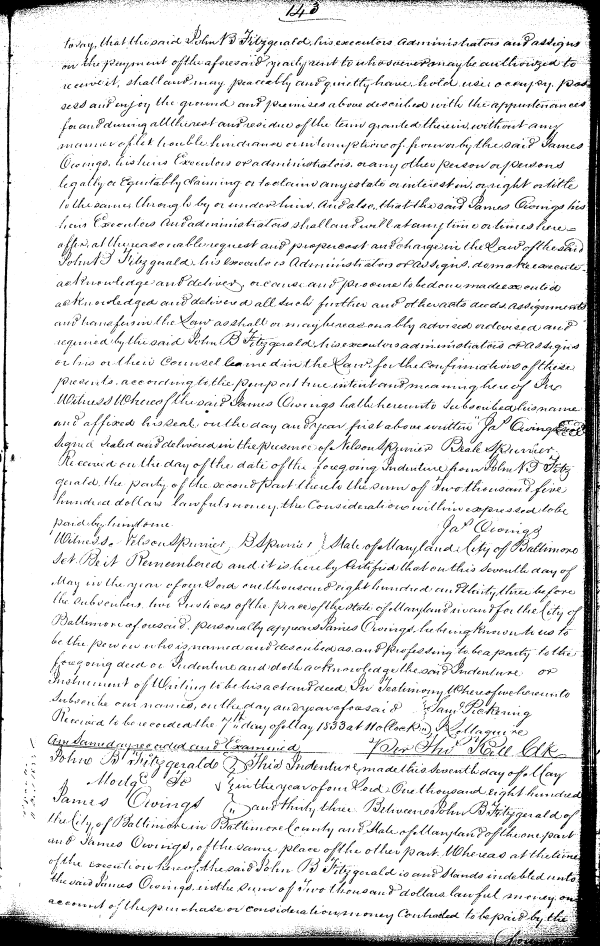 143
to say, that the said John B Fitzgerald, his executors administrators and assigns
on the payment of the aforesaid yearly rent to whosoever may be authorized to
receive it, shall and may peaceably and quietly have hold use occupy, pos-
sess and enjoy the ground and premises above described with the appurtenances
for and during all the rest and residue of the term granted therein, without any
manner of let trouble hindrance or interruption of from or by the said James
Owings, his heirs Executors or administrators, or any other person or persons
legally or equitably claiming or to claim any estate or interest in, or right or title
to the same through by or under him, And also, that the said James Owings his
heirs Executors and administrators shall and will at any time or times here-
after, at the reasonable request and proper cost and charge in the Law of the said
John B Fitzgerald, his executors Administrators or assigns, do make execute
acknowledge and deliver or cause and procure to be done made executed
acknowledged and delivered all such further and other acts deeds assignments
and transfers in the Law as shall or may be reasonably advised or devised and
required by the said John B Fitzgerald, his executors administrators or assigns
or his or their Counsel learned in the Law for the confirmation of these
presents, according to the purport true intent and meaning hereof In
Witness Whereof the said James Owings hath hereunto subscribed his name
and affixed his seal on the day and year first above written Jas Owings Seal
Signed sealed and delivered in the presence of Nelson Spurrier Beale Spurrier
Received on the day of the date of the foregoing Indenture from John B Fitz
gerald, the party of the second part thereto the sum of Two thousand five
hundred dollars lawful money, the consideration within expressed to be
paid by him to me Jas Owings
Witness Nelson Spurrier, B Spurrier State of Maryland City of Baltimore
Set. Be it Remembered and it is hereby Certified that on this seventh day of
May in the year of our Lord one thousand eight hundred and thirty three before
the subscribers, two Justices of the peace of the State of Maryland in and for the City of
Baltimore aforesaid, personally appears James Owings, he being known to us to
be the person who is named and described as and professing to be a party to the
foregoing deed or Indenture and doth acknowledge the said Indenture or
Instrument of Writing to be his act and deed. In Testimony Whereof we hereunto
Subscribe our names, on the day and year aforesaid Saml Pickering
Received to be recorded the 7th day of May 1833 at 11 o'clock
and same day recorded and Examined Per Thos Kell Clk
John B Fitzgerald This Indenture made this seventh day of May
Mortge To in the year of our Lord One thousand eight hundred
James Owings and thirty three Between John B Fitzgerald of
the City of Baltimore in Baltimore County and State of Maryland of the one part
and James Owings, of the same place of the other part. Whereas at the time
of the execution hereof, the said John B Fitzgerald is and stands indebted unto
the said James Owings, in the sum of Two thousand dollars lawful money, on
account of the purchase or consideration money contracted to be paid by the